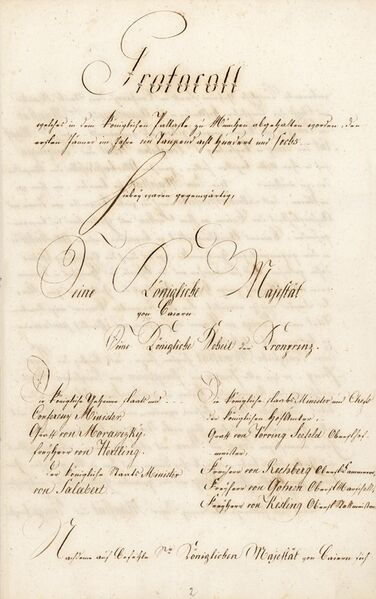 Protocoll
welches in dem königlichen Pallaste zu München abgehalten worden, den
ersten Jänner im Jahre ein tausend acht hundert und sechs.
Hiebey waren gegenwärtig,
Seine Königliche Majestät
von Baiern
Seine Königliche Hoheit der Kronprinz.
Die königliche geheime Staats und
Conferenz Minister
Graf von Morawizky,
Freyherr von Hertling.
der königliche Staats Minister
von Salabert
Die königliche Staats Minister und Chefs
der königlichen
Graf von Törring Seefeld Oberst Hof-
meister,
Freyherr von Rechberg Oberst Kämmerer,
Freyherr von Gohren Oberst Marschall,
Freyherr von Kesling Oberst Stallmeister.
Nachdeme auf Befehle Sr. Königlichen Majestät von Baiern sich
2